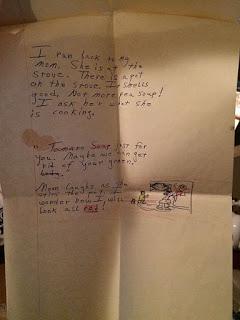 I ran back to my
mom. She is at the
stove. There is a pot
on the stove. It smells
good. Not more pea soup!
I ask her what she
is cooking.
" Tomato Soup just for
you. Maybe we can get
rid of your green
body.
Mom laughs as
the pot. I
wonder how I will
look all red!